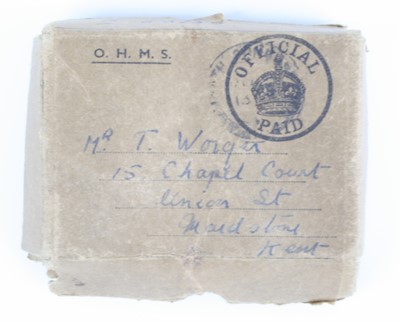 O. H. M. S.
OFFICIAL
PAID
Mr T. Worger
15 Chapel Court
Union St
Maidstone
Kent